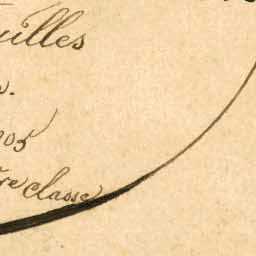 uilles
s.
05
re classe